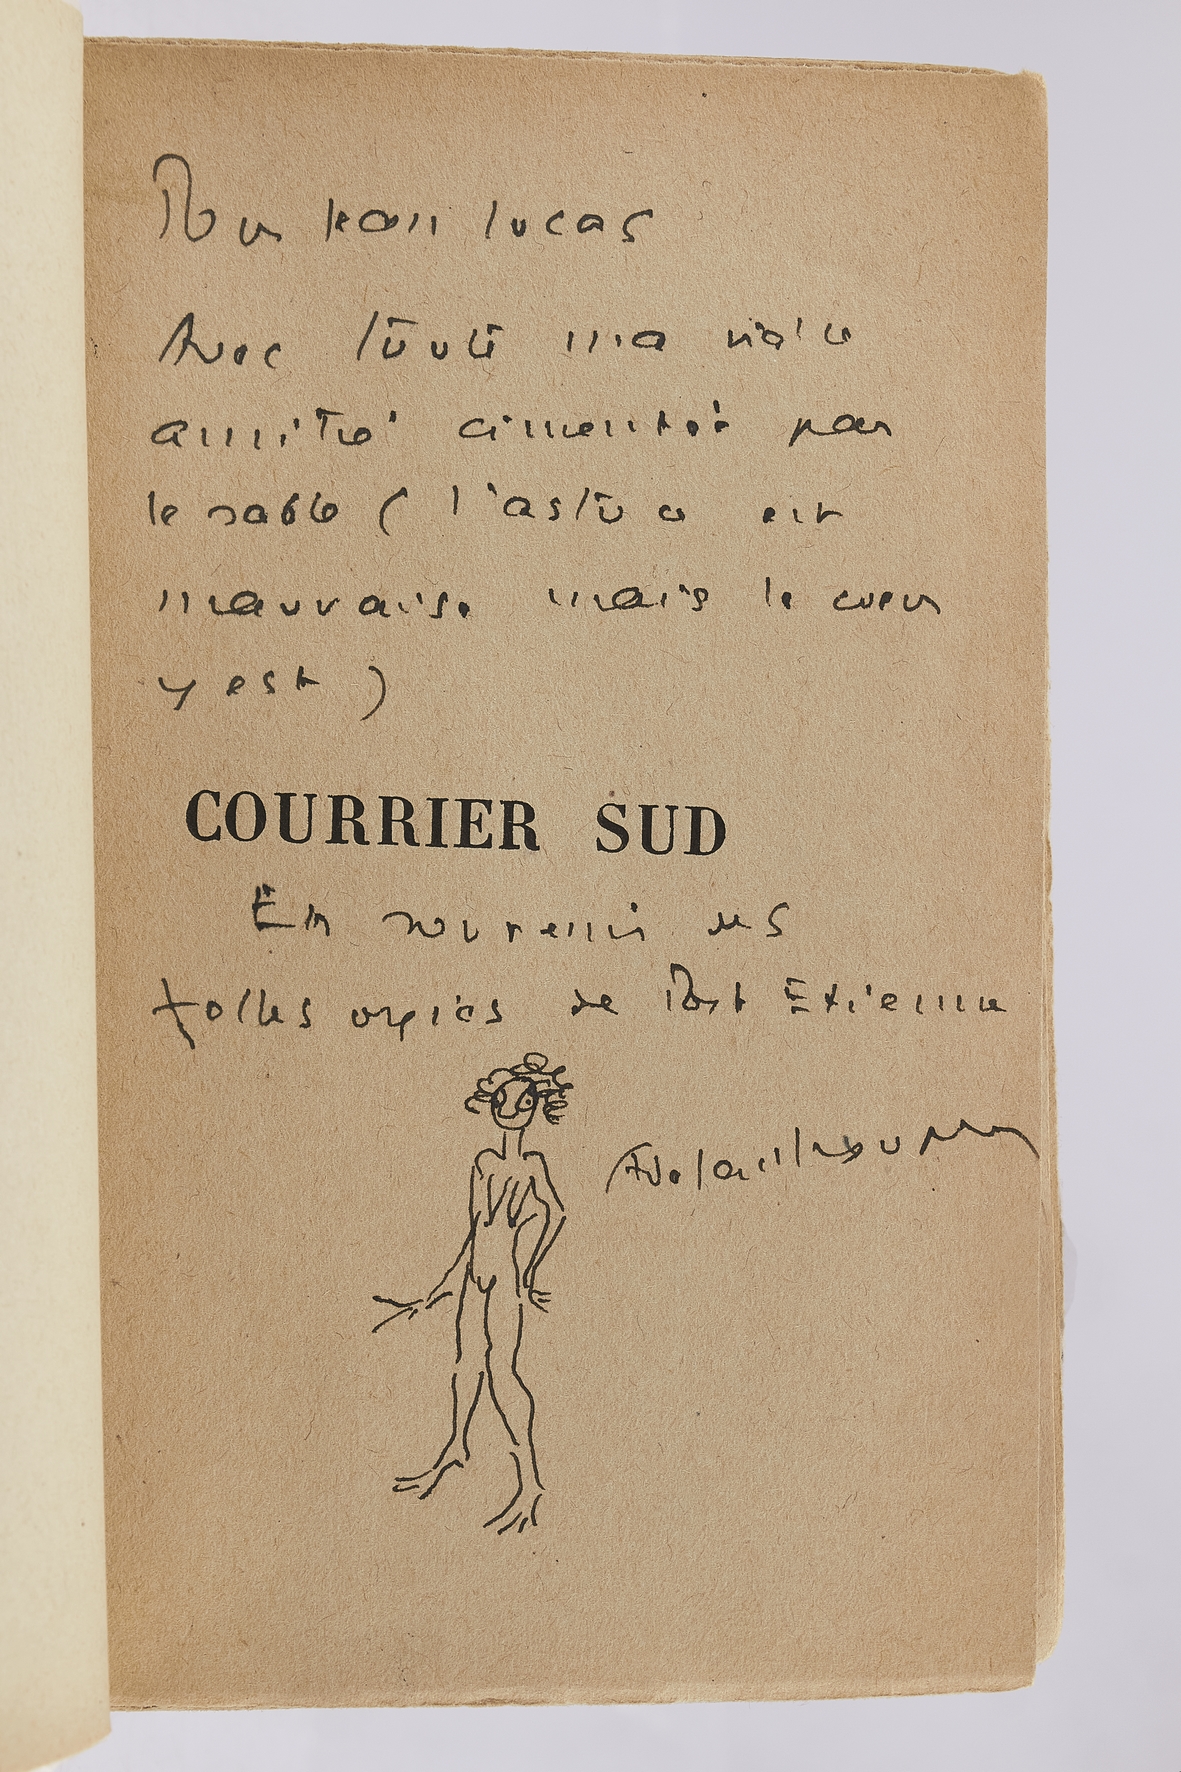 Pour Jean Lucas
Avec toute ma vieille
amitié cimentée par
le sable ( l'astuce est
mauvaise mais le coeur
y est )
COURRIER SUD
En souvenir des
folles orgies de Port Etienne